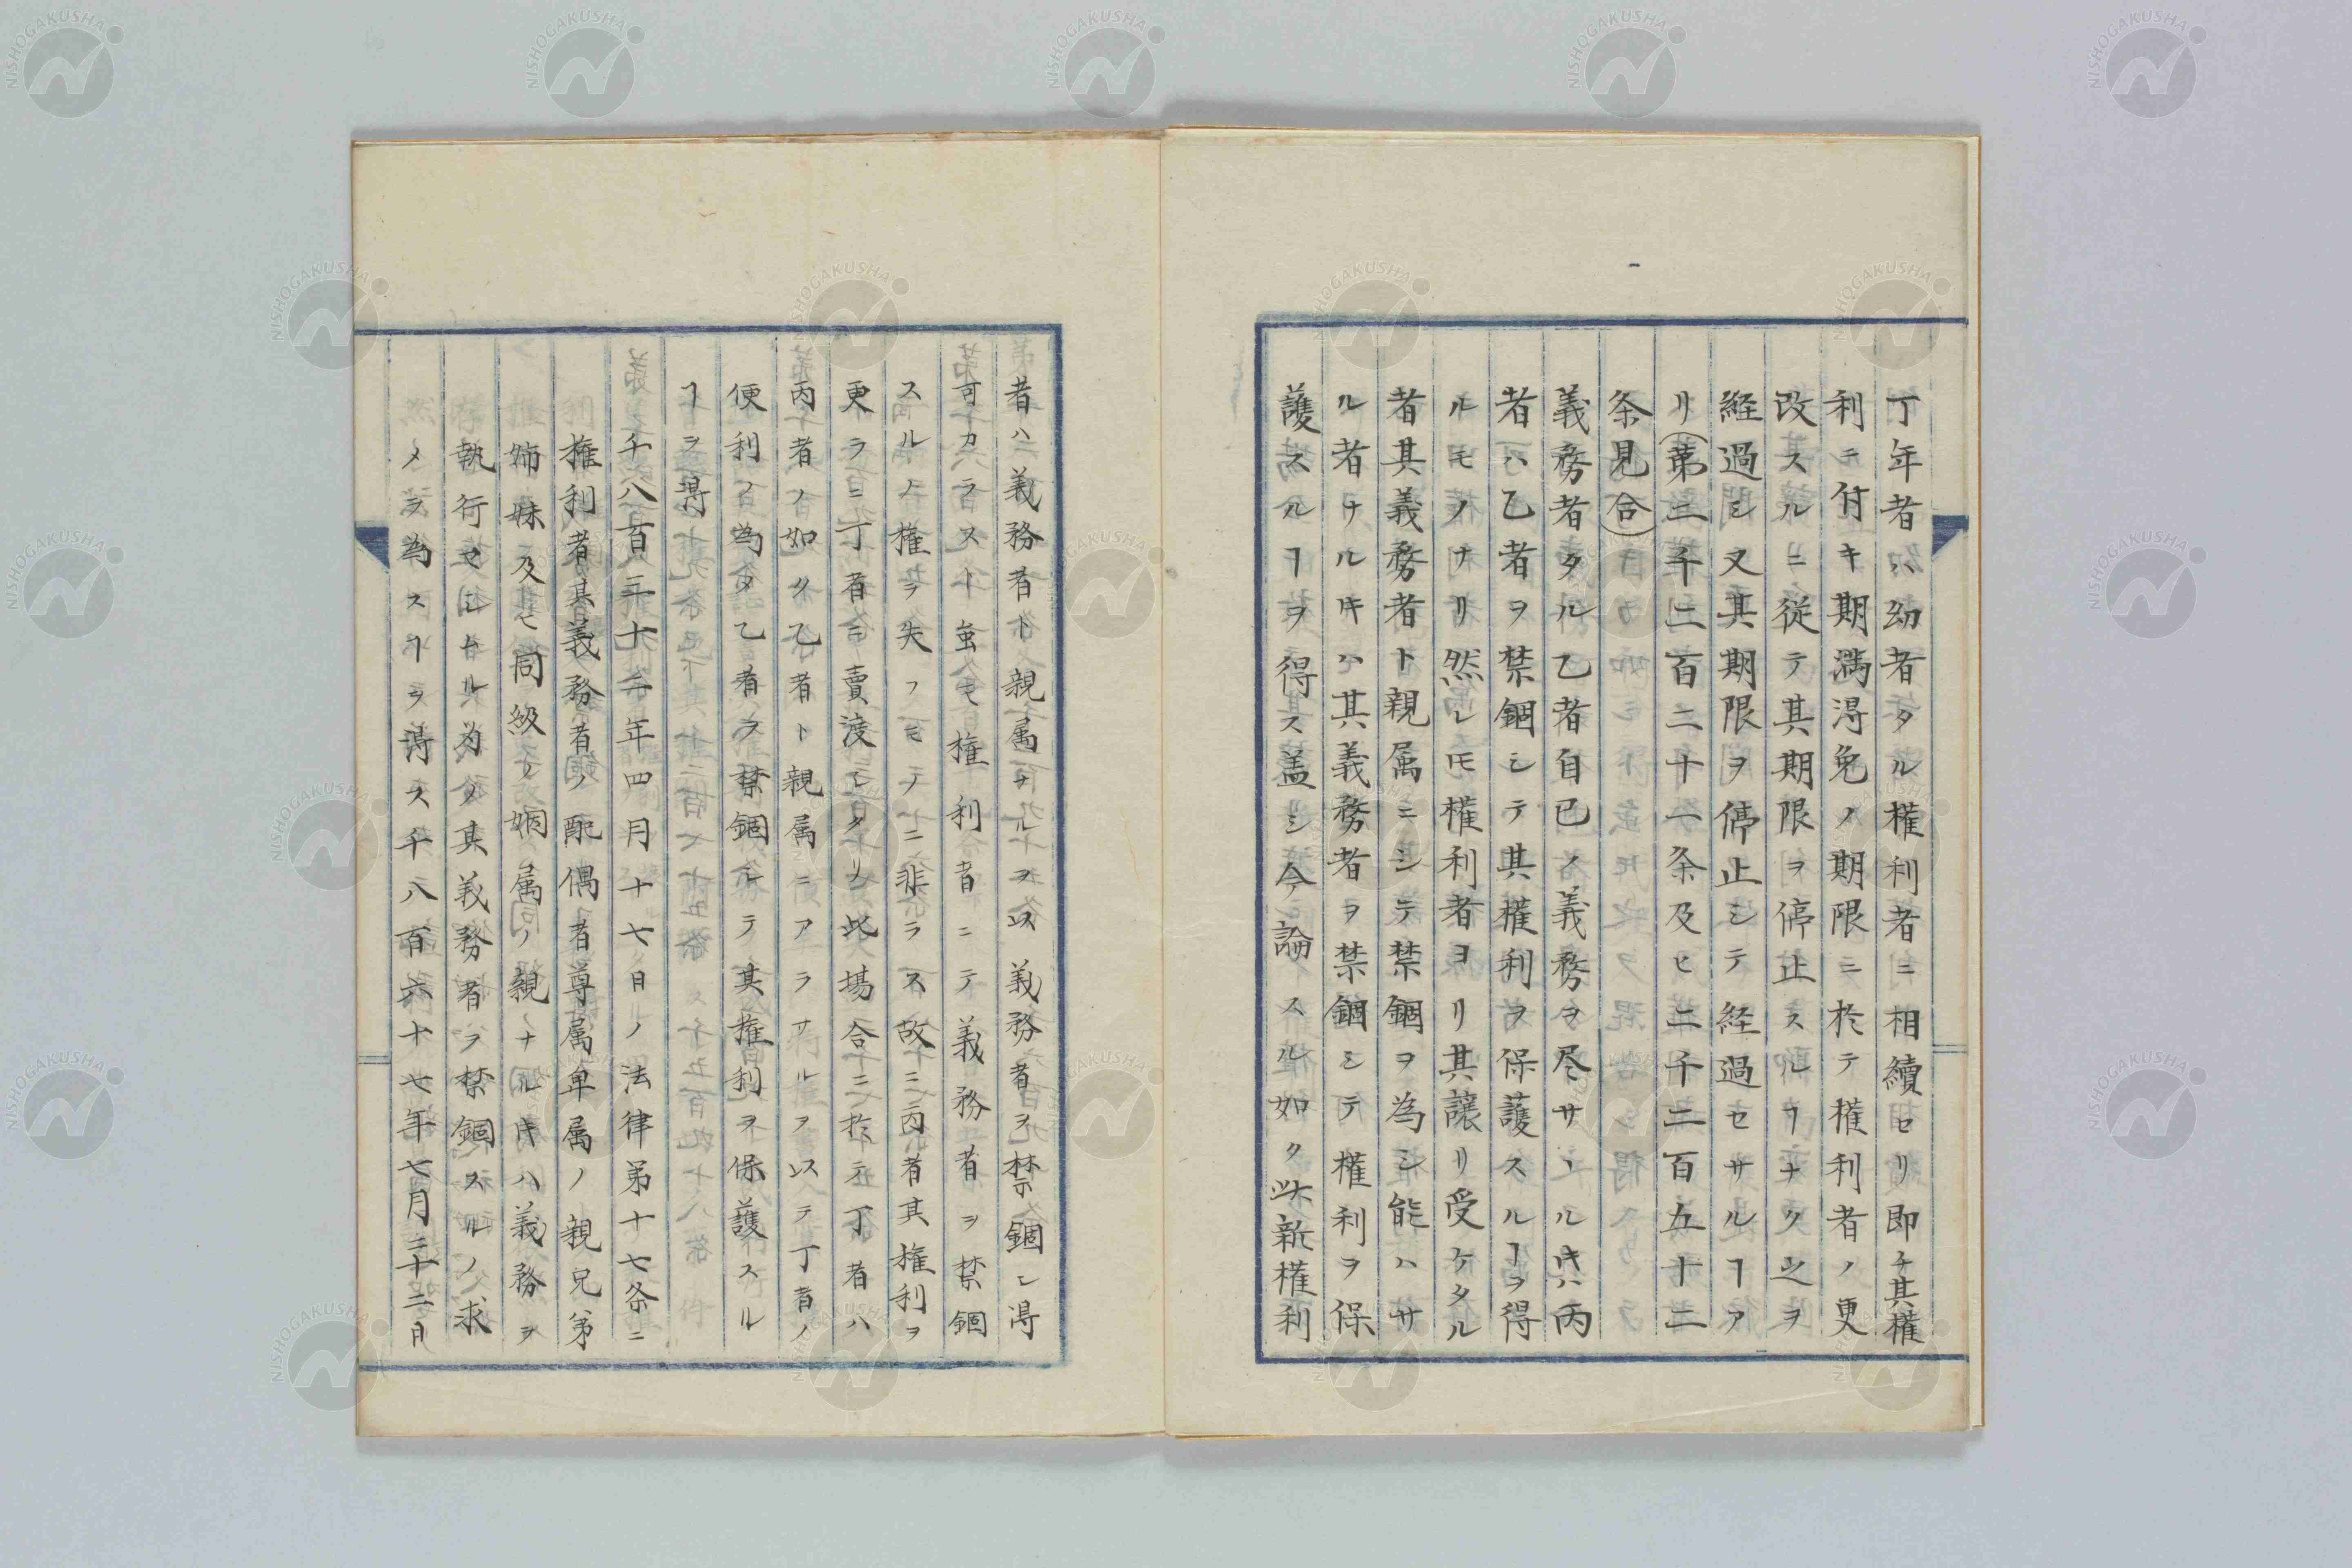 丁年者ハ幼者タル權利者ニ相續セリ即チ其權
利ニ付キ期満淂免ノ期限ニ於テ權利者ノ更
改スルニ從テ其期限ヲ停止スルヿナク之ヲ
経過シ又其期限ヲ停止シテ経過セサルヿア
リ(第二千二百二十一条及ヒ二千二百五十二
条見合)
義務者タル乙者自已ノ義務ヲ尽サヽルキハ丙
者ハ乙者ヲ禁錮シテ其權利ヲ保護スルヿヲ得
ルモノナリ然レ𪜈權利者ヨリ其譲リ受ケタル
者其義務者ト親属ニシテ禁錮ヲ為シ能ハサ
ル者ナルキハ其義務者ヲ禁錮シテ權利ヲ保
護スルヿヲ得ス盖シ今論スル如ク此新權利
者ハ義務者ト親属ナルヲ以義務者ヲ禁錮シ淂
可カラスト𧈧モ權利者ニテ義務者ヲ禁錮
スルノ權ヲ失フモノニ非ラス故ニ丙者其權利ヲ
更ラニ丁者ニ賣渡シタリ此場合ニ於テ丁者ハ
丙者ノ如ク乙者ト親属ニアラサルヲ以テ丁者ノ
便利ノ為メ乙者ヲ禁錮シテ其權利ヲ保護スル
ヿヲ淂
千八百三十二年四月十七日ノ法律第十七条ニ
權利者其義務者ノ配偶者尊属卑属ノ親兄弟
姉妹及ヒ同級ノ姻属ノ親ナルキハ義務ヲ
執行セシムル為メ其義務者ヲ禁錮スルノ求
メヲ為スヿヲ淂ス千八百六十七年七月二十二日
NISHOGAKUSHA